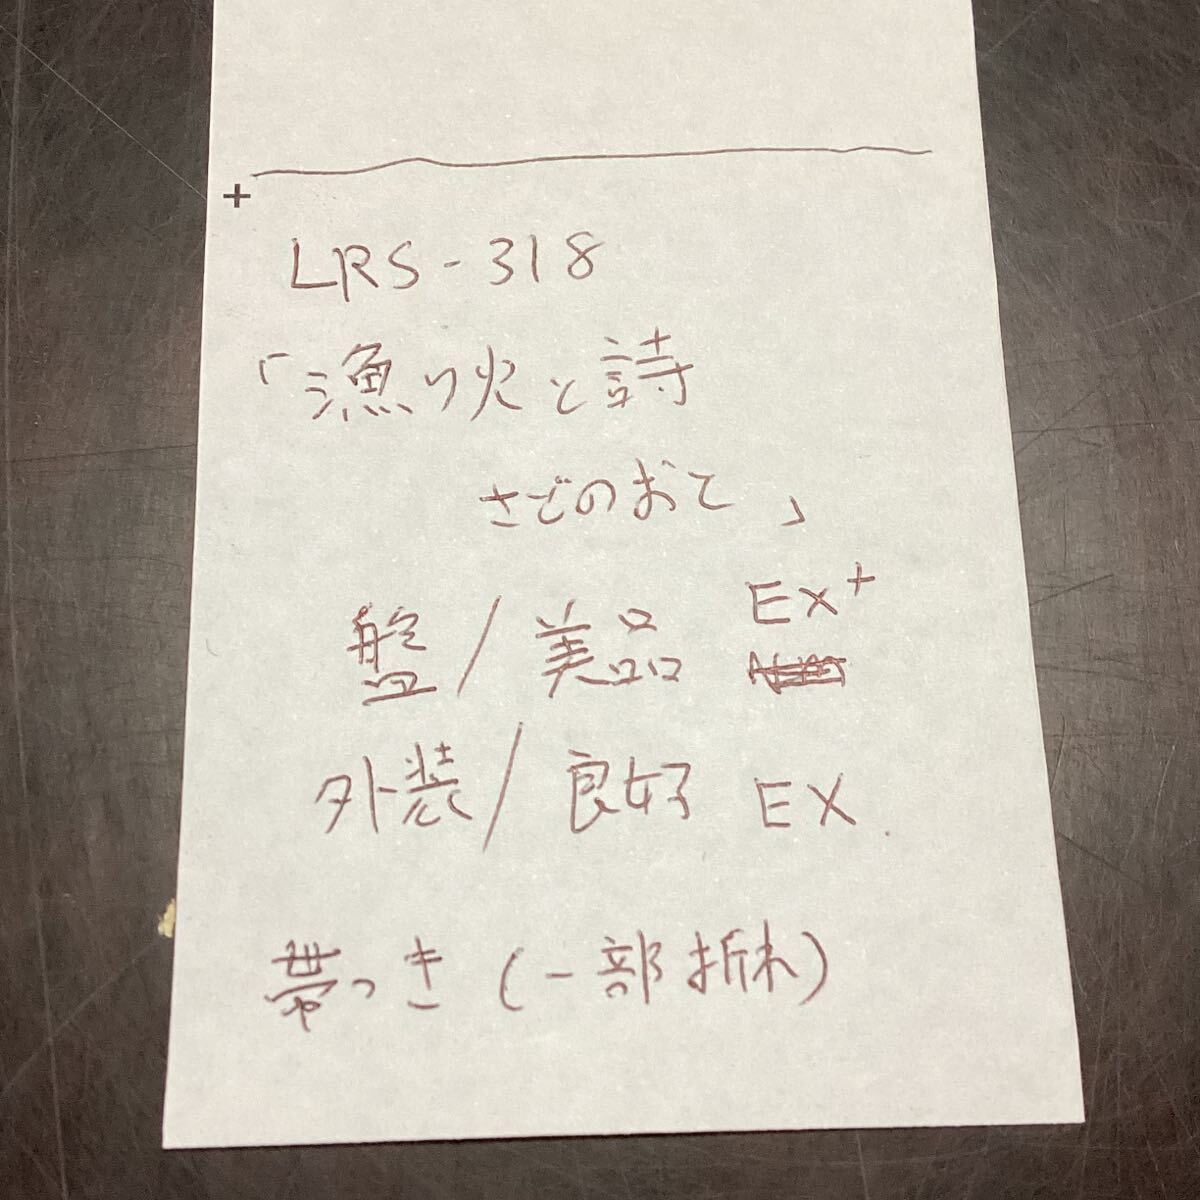 LRS-318
「漁り火と詩
さどのおと」
盤/美品 EX+
外装/良好 EX.
帯つき(一部折れ)